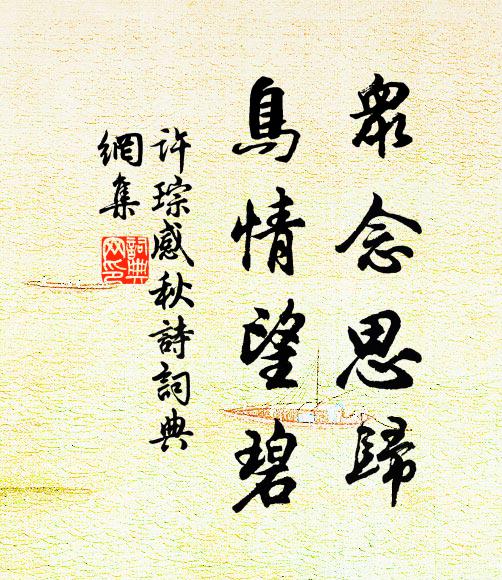 眾念思歸
鳥情望碧
许琮感秋詩詞典
網集
詞典
网印